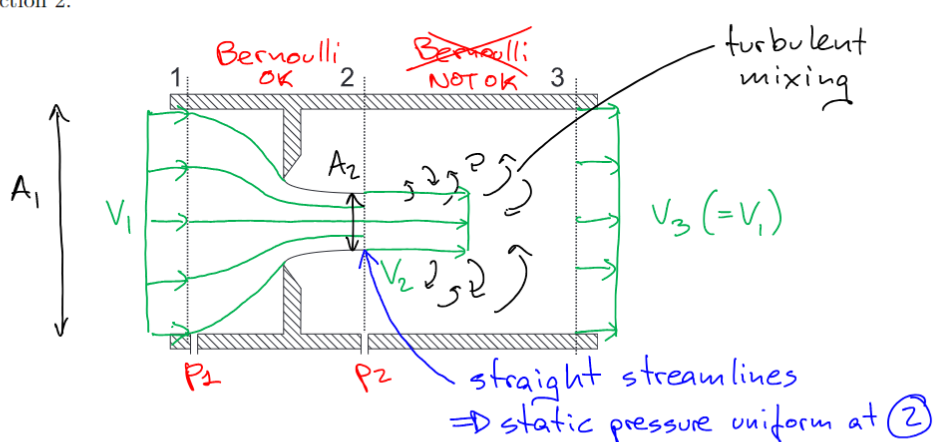 ction 2.
Bernoulli
OK
Bernoulli
NOT OK
turbulent
mixing
1
2
3
A1
A2
V1
V2
V3 (=V1)
P1
P2
straight streamlines
⇒ static pressure uniform at 2